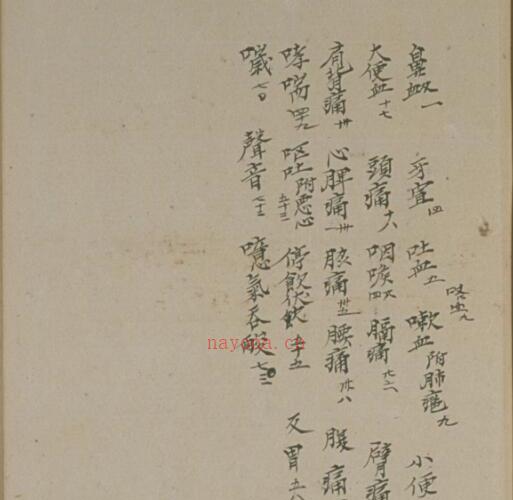 鼻血一 牙宣四 吐血五 嗽血附肺癰九 小便
咯血九
大便血十七 頭痛十八 咽喉 膈痛 臂痛
肩背痛卅 心脾痛卅一 胘痛卅五 腰痛卅八 腿痛
哮喘四九 呕吐附惡心五十三 停飲伏飲五十五 反胃五六
噦七〇 聲音七十三 噫氣吞酸七
nayona.cn